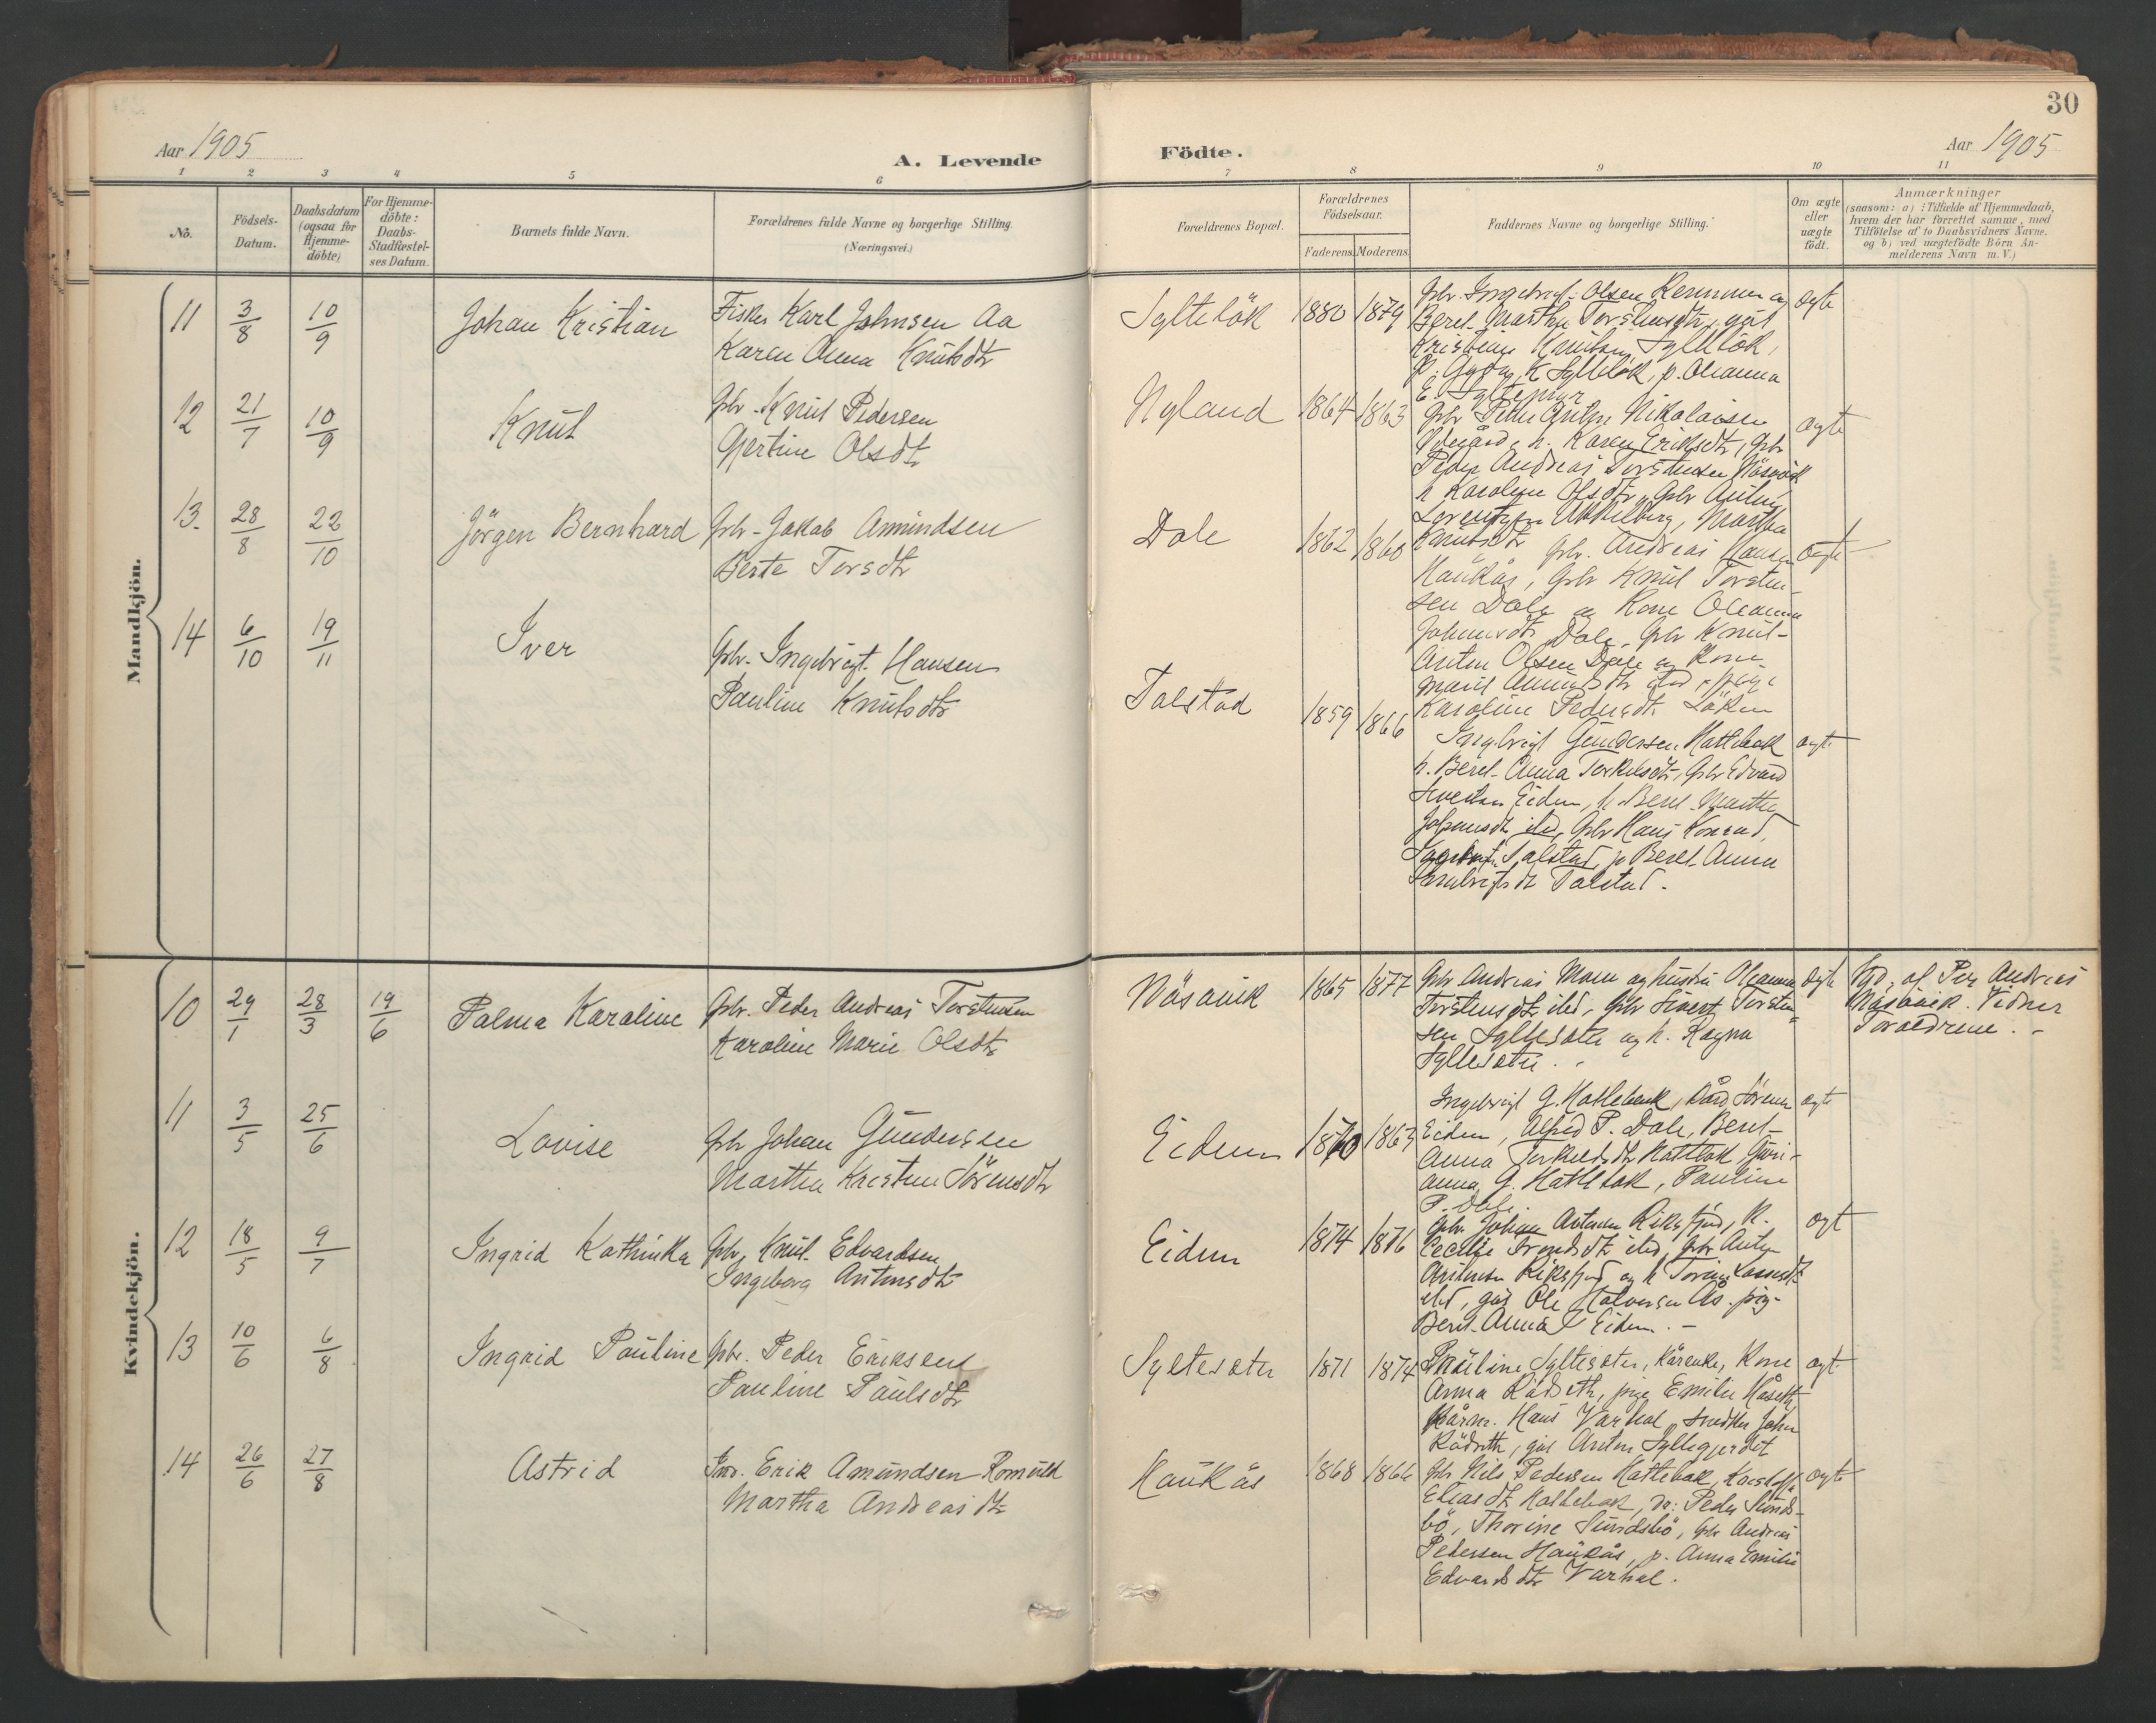 30
Aar 1905
A. Levende
Födte.
Aar 1905
1 2 3 4 5 6 7 8 9 10 11
No.
Födsels-Datum.
Daabsdatum (ogsaa for Hjemme-döbte)
For Hjemme-döbte: Daabs-Stadfæstel-ses Datum.
Barnets fulde Navn.
Forældrenes fulde Navne og borgerlige Stilling. (Næringsvei.)
Forældrenes Bopæl.
Forældrenes Födselsaar.
Faderens. Moderens.
Faddernes Navne og borgerlige Stilling.
Om ægte eller uægte födt.
Anmærkninger
(saasom: a) i Tilfælde af Hjemmedaab,
hvem der har forrettet samme, med
Tilföielse af to Daabsvidners Navne.
og b) ved uægtefödte Börn An-
melderens Navn m. V.)
Mandkjön.
11 3/8 10/9 Johan Kristian
Fisker Karl Johnsen Aa
Karen Anna Knutsdtr
Sylteløk 1880 1879
Gbr. Ingebrigt Olsen Remmen og
Beret Martha
Kristian Knutsen Sylteløk,
K Sylteløk, p. Oleanna
E. Syltemyr
ægte
12 21/7 10/9 Knut
Gbr. Knut Pedersen
Gjertine Olsdtr
Nyland 1864 1863
Gbr Peder Anton Nikolaisen
h. Karen Eriksdtr, Gbr
Peder Andreas Torstensen Näsvik
h Karoline Olsdtr, Gbr
Martha
Knutsdtr
ægte
13. 28/8 22/10 Jörgen Bernhard
Gbr. Jakob Amundsen
Berte Torsdtr
Dale 1862 1860
Gbr. Andreas Hansen
Haukås, Gbr Knut Torsten-
sen Dale og Kone Oleanna
Dale, Gbr Knut
Anton Olsen Dale og Kone
Marit
Karoline Pedersdtr Löken
ægte
14 6/10 19/11 Iver
Gbr. Ingebrigt Hansen
Pauline Knutsdtr
Talstad 1859 1866
Ingebrigt Gundersen Hatlebak
h. Beret Anna Terkelsdtr, Gbr Edvard
Sivertsen Eidem, h. Beret Martha
Johansdtr ibid, Gbr Hans Konrad
Talstad, p Beret Anna
Ingebrigtsdtr Talstad.
ægte
Kvindekjön.
10 29/1 28/3 19/6 Palma Karoline
Gbr. Peder Andreas Torstensen
Karoline Marie Olsdtr
Näsvik 1865 1877
Gbr Andreas Moen og hustru Oleanna
Torstensdtr ibid, Gbr Sivert Torsten-
sen Syltesæter og h. Ragna
Syltesæter.
ægte
af Per Andreas
Näsvik. Vidner
Forældrene.
11 3/5 25/6 Lovise
Gbr Johan Gundersen
Martha Kristine Sörensdtr
Eidem 1870 1863
Ingebrigt G. Hatlebak, Bård Sörensen
Eidem, Alfred P. Dale, Beret
Anna Terkelsdtr Hatlebak, Guri-
anna G. Hatlebak, Pauline
P. Dale.
ægte
12 18/5 9/7 Ingrid Kathinka
Gbr, Knut Edvardsen
Ingeborg Antonsdtr
Eidem 1874 1876
Gbr. Johan Antonsen Riksfjord, K.
Cecilie ibid, Gbr Anton
Antonsen Riksfjord og h
ibid, gut Ole Halvorsen Ås. pig
Beret Anna Eidem.
ægt
13 10/6 6/8 Ingrid Pauline
Gbr. Peder Eriksen
Pauline Paulsdtr
Syltesæter 1871 1874
Pauline Syltesæter, Kone
Anna Rödseth, pige Emilie
Hans Varhol, snedker Johan
Rödseth, gut Anton Syltegjerdet
ægt.
14 26/6 27/8 Astrid
Erik Amundsen
Martha Andreasdtr
Haukås 1868 1866
Gbr Nils Pedersen Hatlebak,
Eliasdtr Hatlebak, Peder Sunds-
bö, Thorine Sundsbö, Gbr Andreas
Pedersen Haukås, p. Anna Emilie
Edvardsdtr Varhol.
ægte